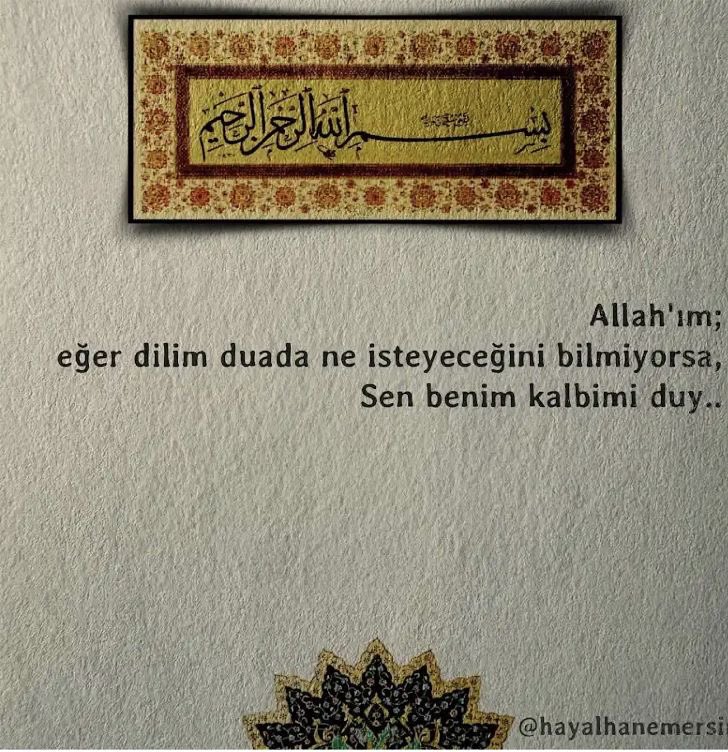 بسم الله الرحمن الرحيم
Allah'ım;
eğer dilim duada ne isteyeceğini bilmiyorsa,
Sen benim kalbimi duy..
@hayalhanemersi